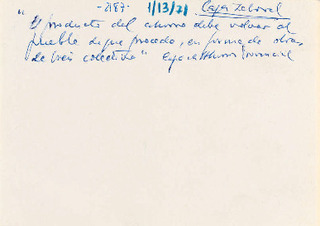 " -2187- 1/13/71 Caja Laboral
El producto del ahorro debe volver al
pueblo de que procede, en forma de obras
de interés colectivo"